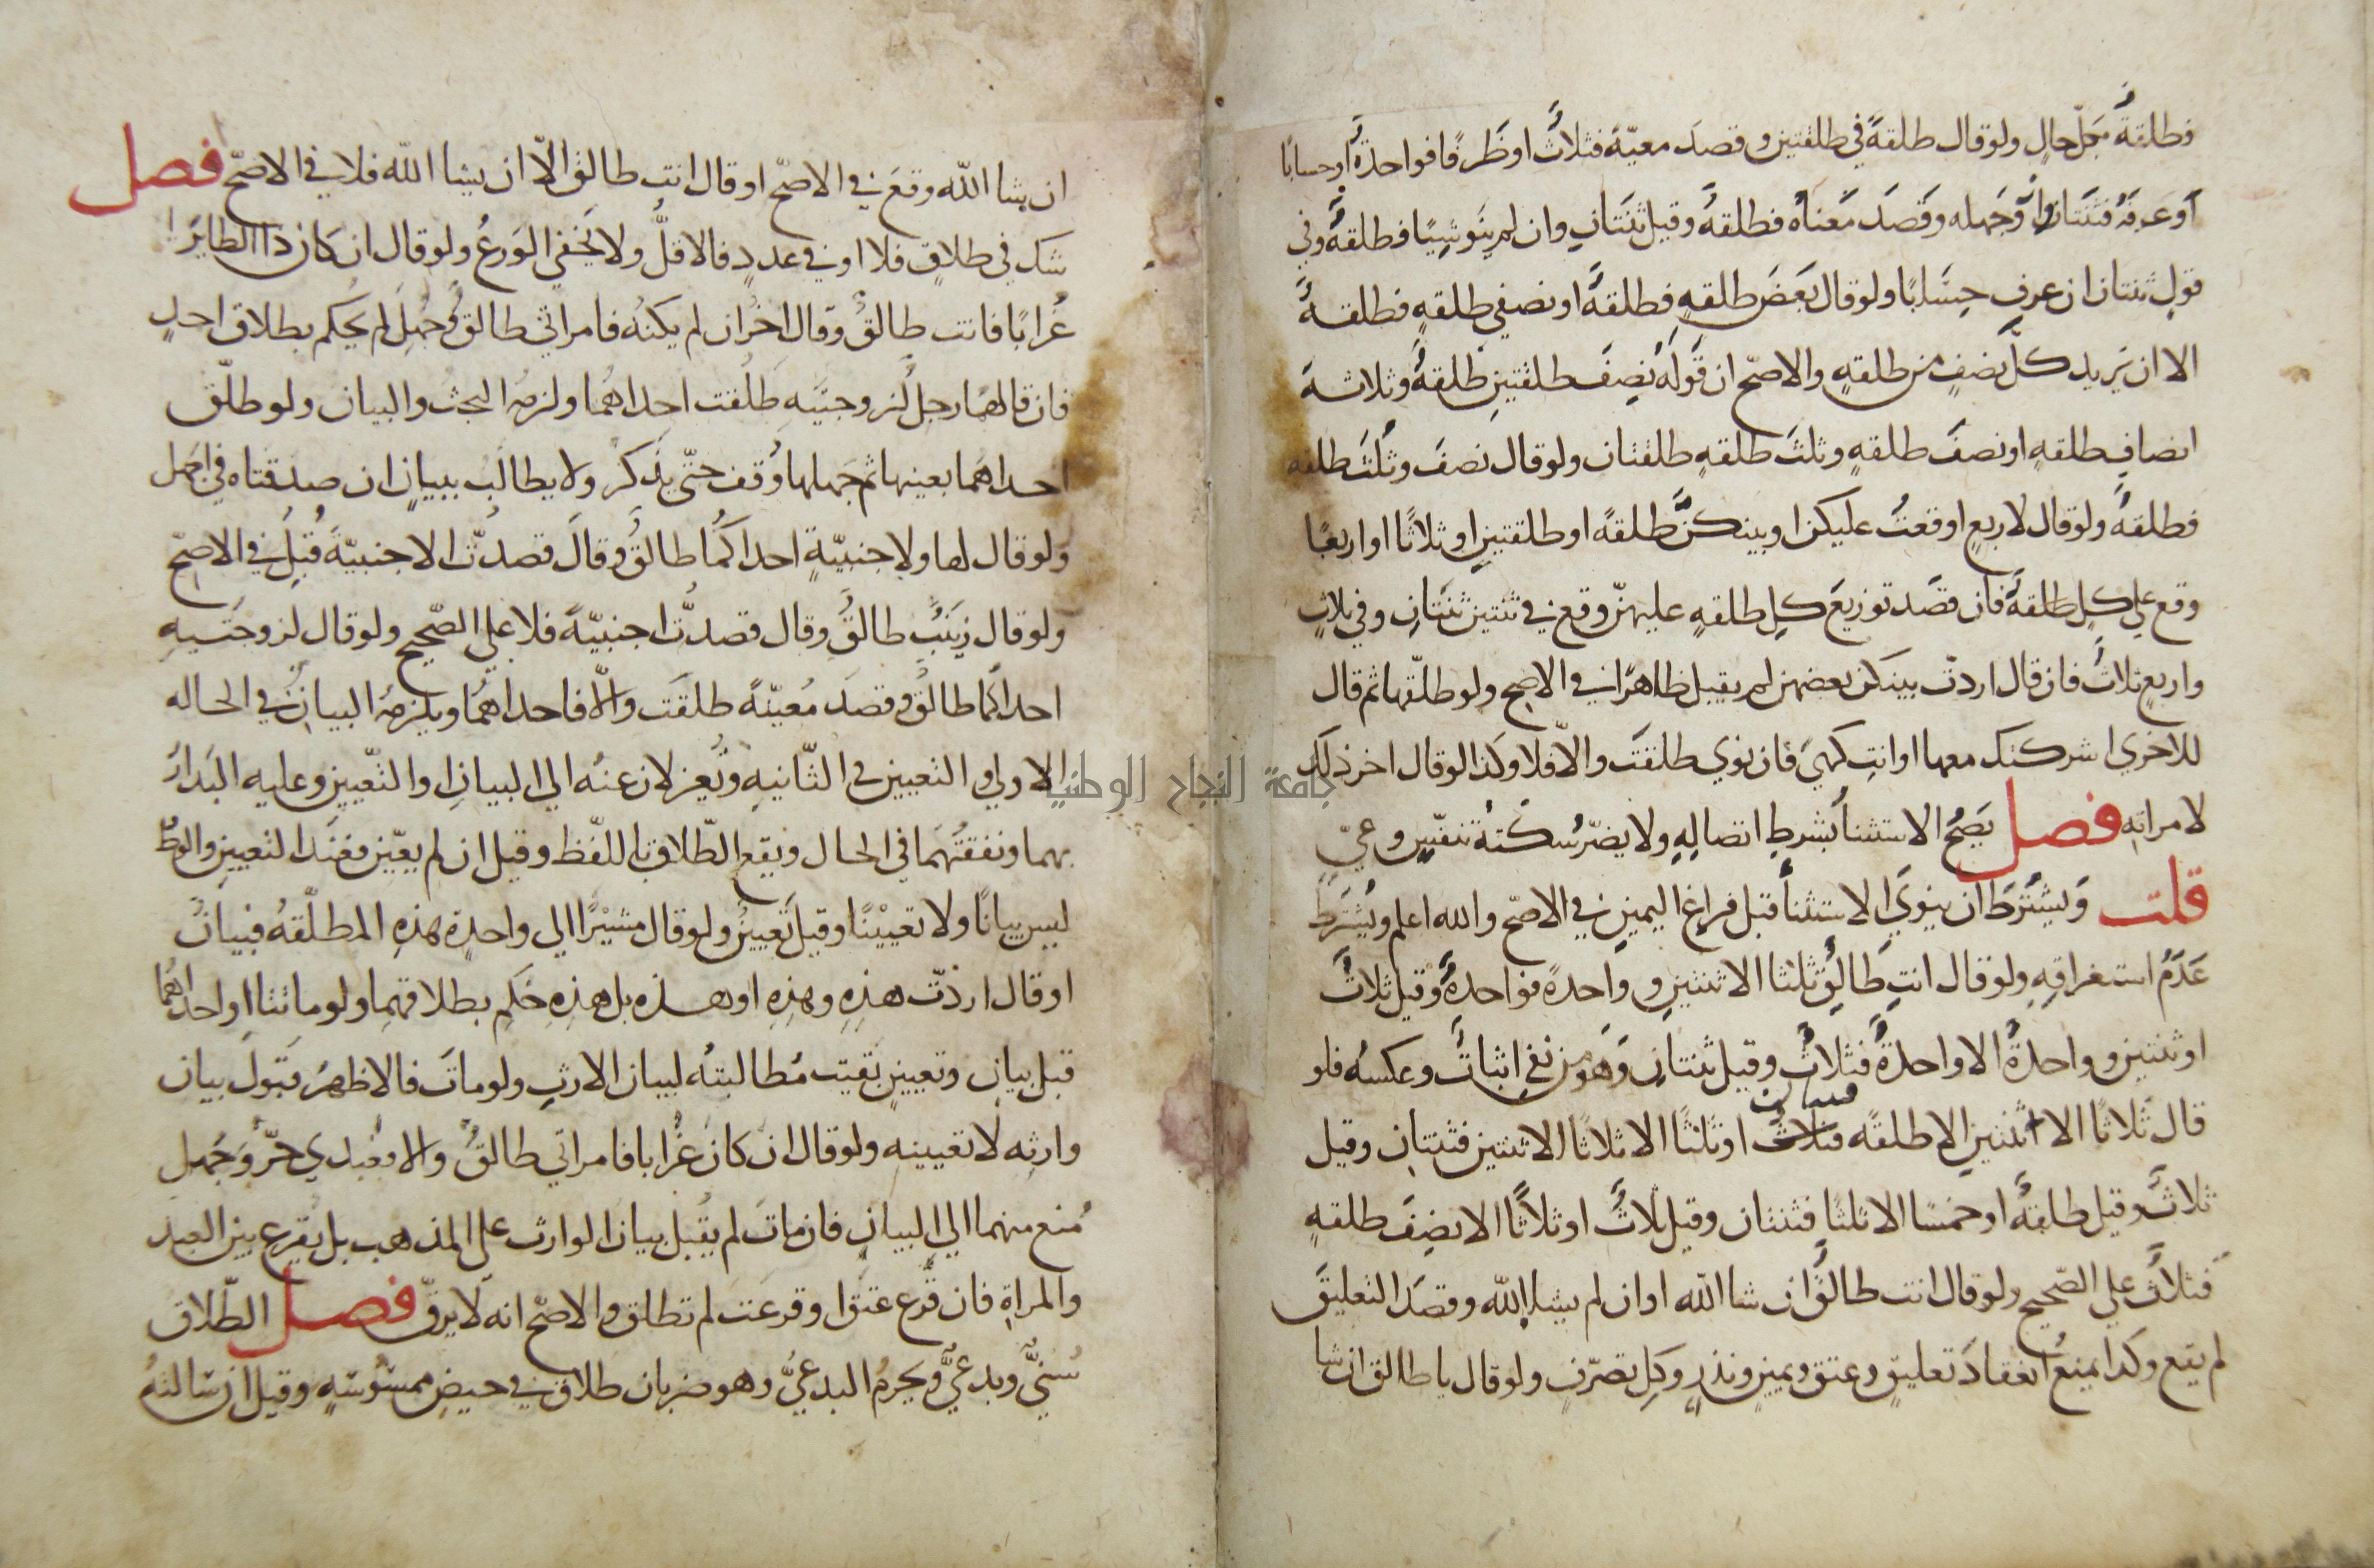 فطلقةٌ بكلّ حالٍ ولو قال طلقةً في طلقتين وقصدَ معيّةً فثلاثٌ او ظَرفًا فواحدةٌ او حسابًا
او عرفهُ فثنتان وان جهله وقصدَ مَعناهُ فطلقةٌ وقيل ثنتانِ وان لم ينوِ شيًا فطلقةٌ وفي
قولٍ ثنتان ان عرف حِسَابًا ولو قال بَعْضَ طلقةٍ فطلقةٌ او نصفي طلقةٍ فطلقةٌ
الا ان يريد كلَّ نصفٍ من طلقةٍ والاصحّ ان قَولَهُ نِصفَ طلقتينِ طلقةٌ وثلاثة
انصافِ طلقةٍ او نصفَ طلقةٍ وثلثَ طلقةٍ طلقتان ولو قال نصفَ وثُلثَ طلقه
فطلقةٌ ولو قال لاربعٍ اوقعتُ عليكن او بينكنَّ طلقةً او طلقتينِ او ثلاثًا او اربعًا
وقع على كلٍ طلقةٌ فان قصَد توزيعَ كلِ طلقةٍ عليهنّ وقع في ثنتين ثنتانِ وفي ثلاثٍ
واربعٍ ثلاثٌ فان قال اردتُ بينكن بعضهن لم يقبل ظاهرًا في الاصح ولو طلّقها ثم قال
للاخري اشركتك معها او انتِ كهيَ فان نوي طلقتَ والاّ فلا وكذا لو قال اخر ذلك
لامراتهِ فصل يَصحُّ الاستثنأُ بشرطِ اتصالِهِ ولا يضرّ سُكتةُ تنفّسٍ وعيٍّ
قلت وَيشتَرَطُ ان ينويَ الاستثنأَ قبل فراغِ اليمينِ في الاصحّ والله اعلم ويُشتَرَطُ
عَدَمُ استغراقِهِ ولو قال انتِ طَالِقٌ ثلاثا الا ثنتينِ وواحدةً فواحدةٌ وقيل ثلاثٌ
او ثنتين وواحدةً الا واحدةً فثلاثٌ وقيل ثنتان وَهو من نفيٍ اثباتٌ وعكسُه فلو
قال ثلاثًا الا ثنتينِ الا طلقةً فثنتان او ثلاثًا الا ثلاثًا الا ثنتين فثنتانِ وقيل
ثلاثٌ وقيل طلقةٌ او خمسًا الا ثلاثًا فثنتان وقيل ثلاثٌ او ثلاثًا الا نِصفَ طلقةٍ
فثلاثٌ علي الصّحيح ولو قال انت طالقٌ ان شا اللّه او ان لم يشا اللّه وقصدَ التعليقَ
لم يقع وكذا يمنعُ انعقادَ تعليقٍ وعتقٍ ويمينٍ ونذرٍ وكلِ تصرّفٍ ولو قال يا طالق ان شا
ان شا اللّه وقعَ في الاصحّ او قال انت طالق الّا ان يشا اللّه فلا في الاصحّ فصل
شكَ في طلاقٍ فلا او في عددٍ فالاقلُّ ولا يخفي الوَرعُ ولو قال ان كان ذا الطايرُ
غُرابًا فانت طالقٌ وقال اخرُ ان لم يكنهُ فامراتي طالقٌ وجُهِلَ لم يحكم بطلاق احدٍ
فان قالهمَا رجلٌ لزوجتَيهِ طَلُقت احداهُما ولزمهُ البحثُ والبيان ولو طلّق
احداهُمَا بعينها ثم جَهلها وُقف حتّي يذكرَ ولا يطالَبُ ببيانٍ ان صدقتاه في الجهل
ولو قال لها ولاجنبيّةٍ احداكُما طالقٌ وقالَ قصدتُّ الاجنبيّةَ قُبِلَ في الاصحّ
ولو قال زينَبُ طالقٌ وقال قصدتُّ اجنبيّةً فلا علي الصّحيح ولو قال لزوجتَيهِ
احداكُما طالقٌ وقصدَ مُعيّنةً طلقَت والاّ فاحداهُمَا ويلزمهُ البيانُ في الحاله
الاولي والتعيين في الثّانيةِ وتُعزلان عنهُ الي البيانِ او التّعيينِ وعليه البدارُ
بهما ونفقتُهمَا في الحال ويقع الطّلاق باللفّظ وقيل ان لم يعيّن فعندَ التعيينِ والوطُ
ليس بيانًا ولا تعيينًا وقيل تعيينٌ ولو قال مشيرًا الي واحدةٍ هذهِ المطلّقةُ فبيانٌ
او قال اردتّ هذهِ وهذِهِ او هذه بل هذِهِ حُكِم بطلاقهِما ولو ماتتا او احداهُما
قبل بيانٍ وتعيينٍ بَقيت مُطالبتهُ لبيان الارثِ ولو ماتَ فالاظهرُ قبَولُ بيان
وارثِهِ لا تعيينهِ ولو قال ان كان غُرابا فامراتي طالقٌ والا فعَبدي حرٌّ وَجُهلَ
مُنع منهما الي البيانِ فان ماتَ لم يقبل بيان الوارث علي المذهب بل يُقرع بين العبد
والمراةِ فان قَرع عتقَ او قرعَت لم تطلق والاصحّ انه لا يرقّ فصل الطّلاق
سُنيٌّ وبدعيٌّ ويحرمُ البدعيُّ وهو ضربان طلاقٌ في حيضِ ممسُوسَةٍ وقيل ان سَالتهُ
جامعة النجاح الوطنية